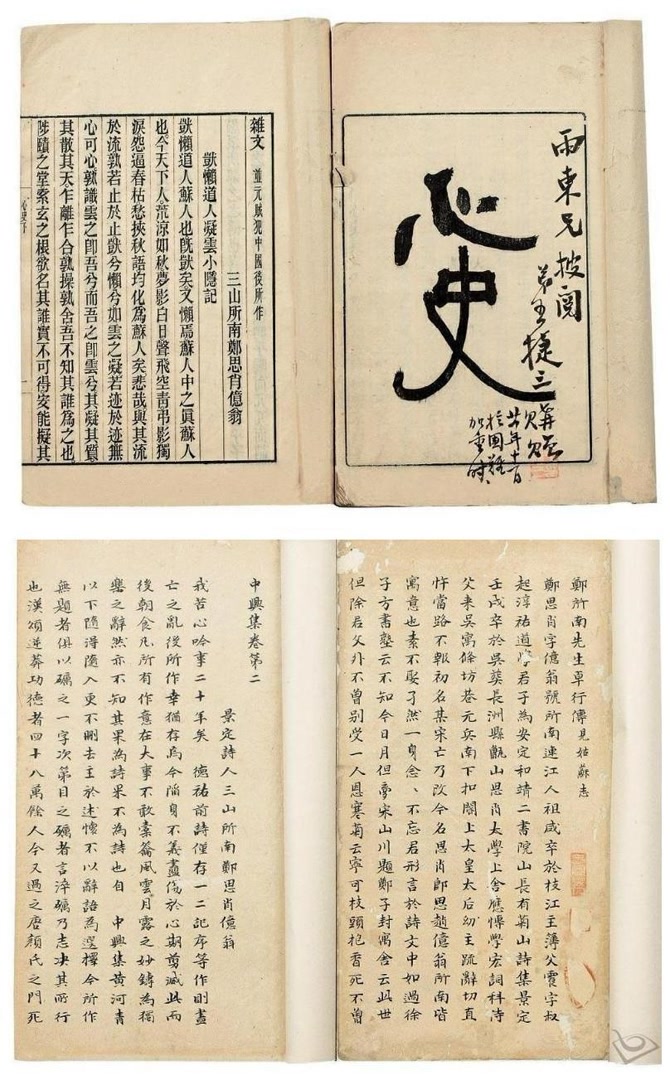 雨東兄披閱
弟王捷三
購贈
廿年十一月
於國難
加重時
心史
雜文 並元賊犯中國後所作
三山所南鄭思肖億翁
獃懶道人凝雲小隱記
獃懶道人蘇人也既獃矣又懶焉蘇人中之眞蘇人
也今天下人荒涼如秋夢影白日聲飛空青弔影獨
淚怨逼春枯愁挾秋語均化為蘇人矣悲哉與其流
於流孰若止於止獃兮懶兮如雲之凝若迹於迹無
心可心孰識雲之卽吾兮而吾之卽雲兮其凝其質
其散其天乍離乍合孰操孰舍吾不知其誰為之也
陟賾之堂索玄之根欲名其誰實不可得安能擬其
鄭所南先生卓行傳 見姑蘇志
鄭思肖字億翁號所南連江人祖咸卒於枝江主簿父震字叔
起淳祐道學君子為安定和靖二書院山長有菊山詩集景定
壬戌卒於吳葬長洲縣甑山思肖太學上舍應博學宏詞科侍
父來吳寓條坊巷元兵南下扣閽上太皇太后幼主疏辭切直
忤當路不報初名某宋亡乃改今名思肖卽思趙億翁所南皆
寓意也素不娶孑然一身念〻不忘君形言於詩文中如過徐
子方書塾云不知今日月但夢宋山川題鄭子封寓舍云此世
但除君父外不曾別受一人恩寒菊云寧可枝頭抱香死不曾
中興集卷第二
景定詩人三山所南鄭思肖億翁
我苦心吟事二十年矣 德祐前詩僅存一二記序等作則盡
亡之亂後所作幸猶存焉今陷身不義盡傷於心期剪滅此而
後朝食凡所有作意在大事不敢橐籥風雲月露之妙鑄為獨
樂之辭然亦不知其果為詩果不為詩也自 中興集黃河清
以下隨得隨入更不刪去主於述懷不以辭語為選擇今所作
無題者俱以礪之一字次第目之礪者言淬礪乃志决其所行
也漢頌逆莽功德者四十八萬餘人今又過之唐顏氏之門死